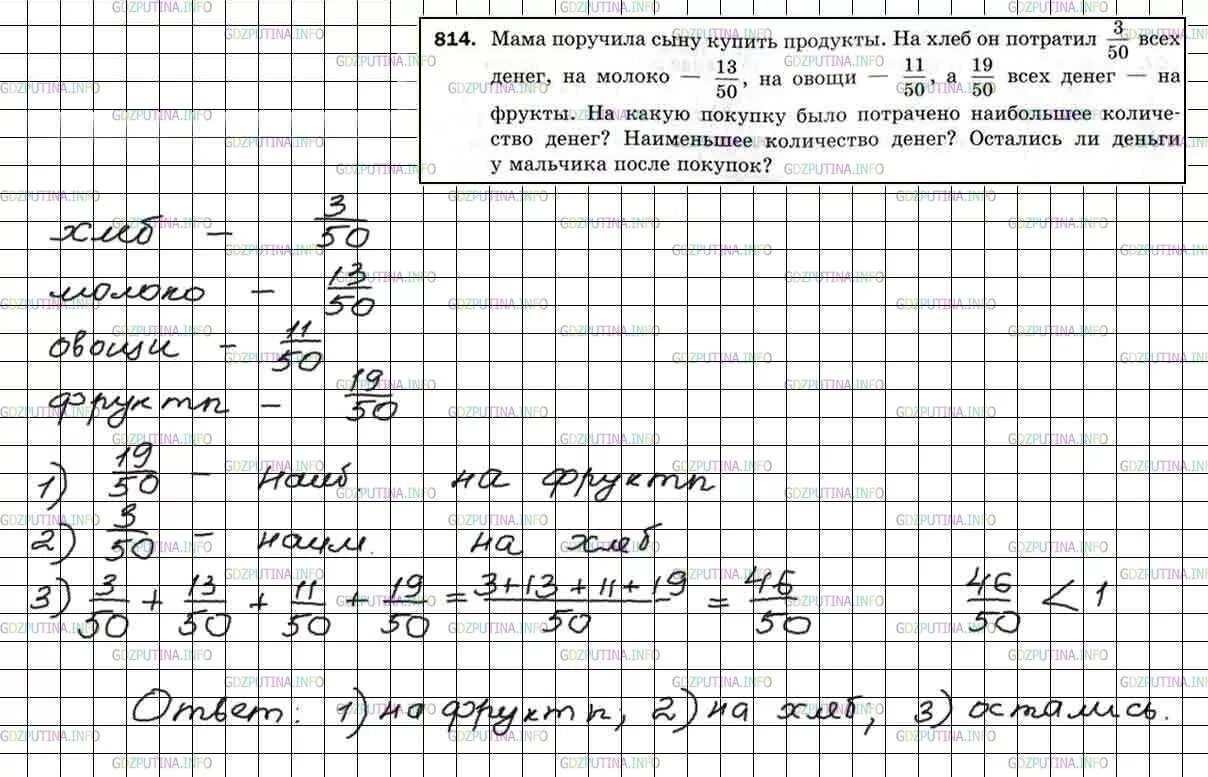 814. Мама поручила сыну купить продукты. На хлеб он потратил 3/50 всех
денег, на молоко — 13/50, на овощи — 11/50, а 19/50 всех денег — на
фрукты. На какую покупку было потрачено наибольшее количе-
ство денег? Наименьшее количество денег? Остались ли деньги
у мальчика после покупок?
хлеб – 3/50
молоко – 13/50
овощи – 11/50
фрукты – 19/50
1) 19/50 – наиб. на фрукты
2) 3/50 – наим. на хлеб
3) 3/50 + 13/50 + 11/50 + 19/50 = 3+13+11+19/50 = 46/50 46/50 < 1
Ответ: 1) на фрукты, 2) на хлеб, 3) остались.
GDZPUTINA.INFO